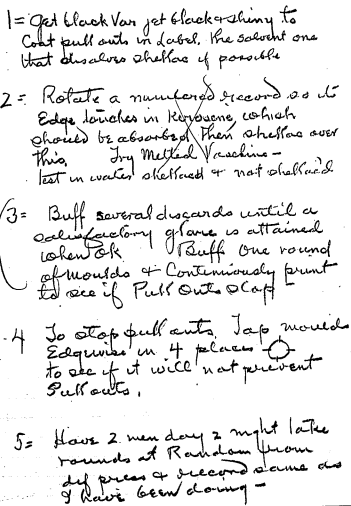 1= Get black Var jet black & shiny to
Coat pull outs in Label. the solvent one
that disolves shellac if possible
2= Rotate a numbered record so its
Edge touches in Kerosene, which
should be absorbed, then shellac over
this, Try Melted Vaseline—
test in water shellaced & not shellac'd
3= Buff several discards until a
satisfactory glare is attained
when OK Buff one round
of moulds & Continuously print
to see if Pull Outs stop—
4 To stop pull outs, Tap moulds
Edgewise in 4 places
to see if it will not prevent
Pull outs,
5= Have 2 men day 2 night take
rounds at Random from
dif press & record same as
I have been doing—